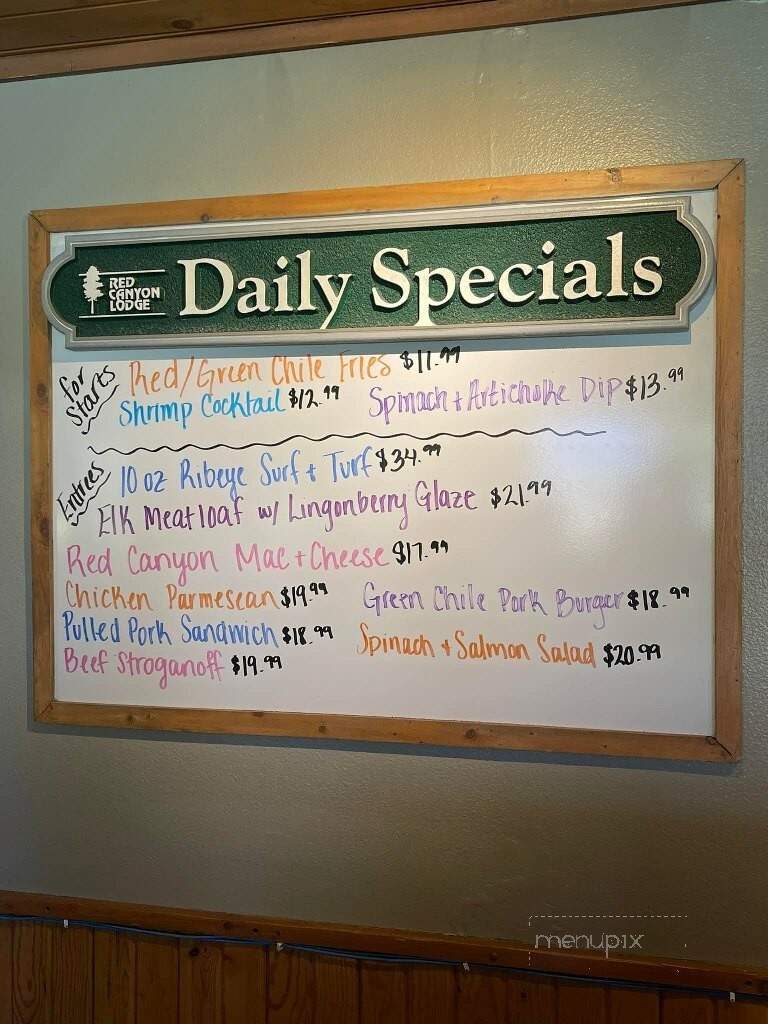 RED
CANYON
LODGE
Daily Specials
for Starts
Red/Green Chile Fries $11.99
Shrimp Cocktail $12.99 Spinach + Artichoke Dip $13.99
Entrees
10 oz Ribeye Surf + Turf $34.99
Elk Meatloaf w/ Lingonberry Glaze $21.99
Red Canyon Mac + Cheese $17.99
Chicken Parmesean $19.99 Green Chile Pork Burger $18.99
Pulled Pork Sandwich $18.99 Spinach + Salmon Salad $20.99
Beef Stroganoff $19.99
menupix